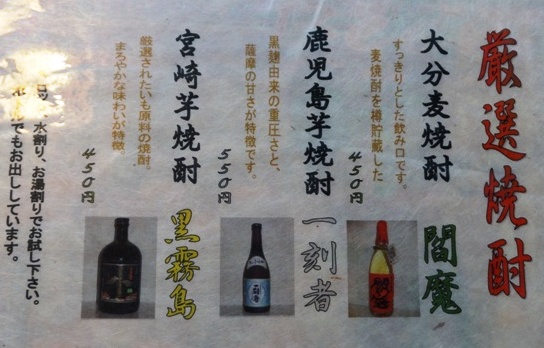 厳選焼酎
大分麦焼酎
閻魔
すっきりとした飲み口です。
麦焼酎を樽貯蔵した
450円
鹿児島芋焼酎
一刻者
黒麹由来の重圧さと、
薩摩の甘さが特徴です。
550円
宮崎芋焼酎
黒霧島
厳選されたいも原料の焼酎。
まろやかな味わいが特徴。
450円
ロック、水割り、お湯割りでお試し下さい。
でもお出ししています。